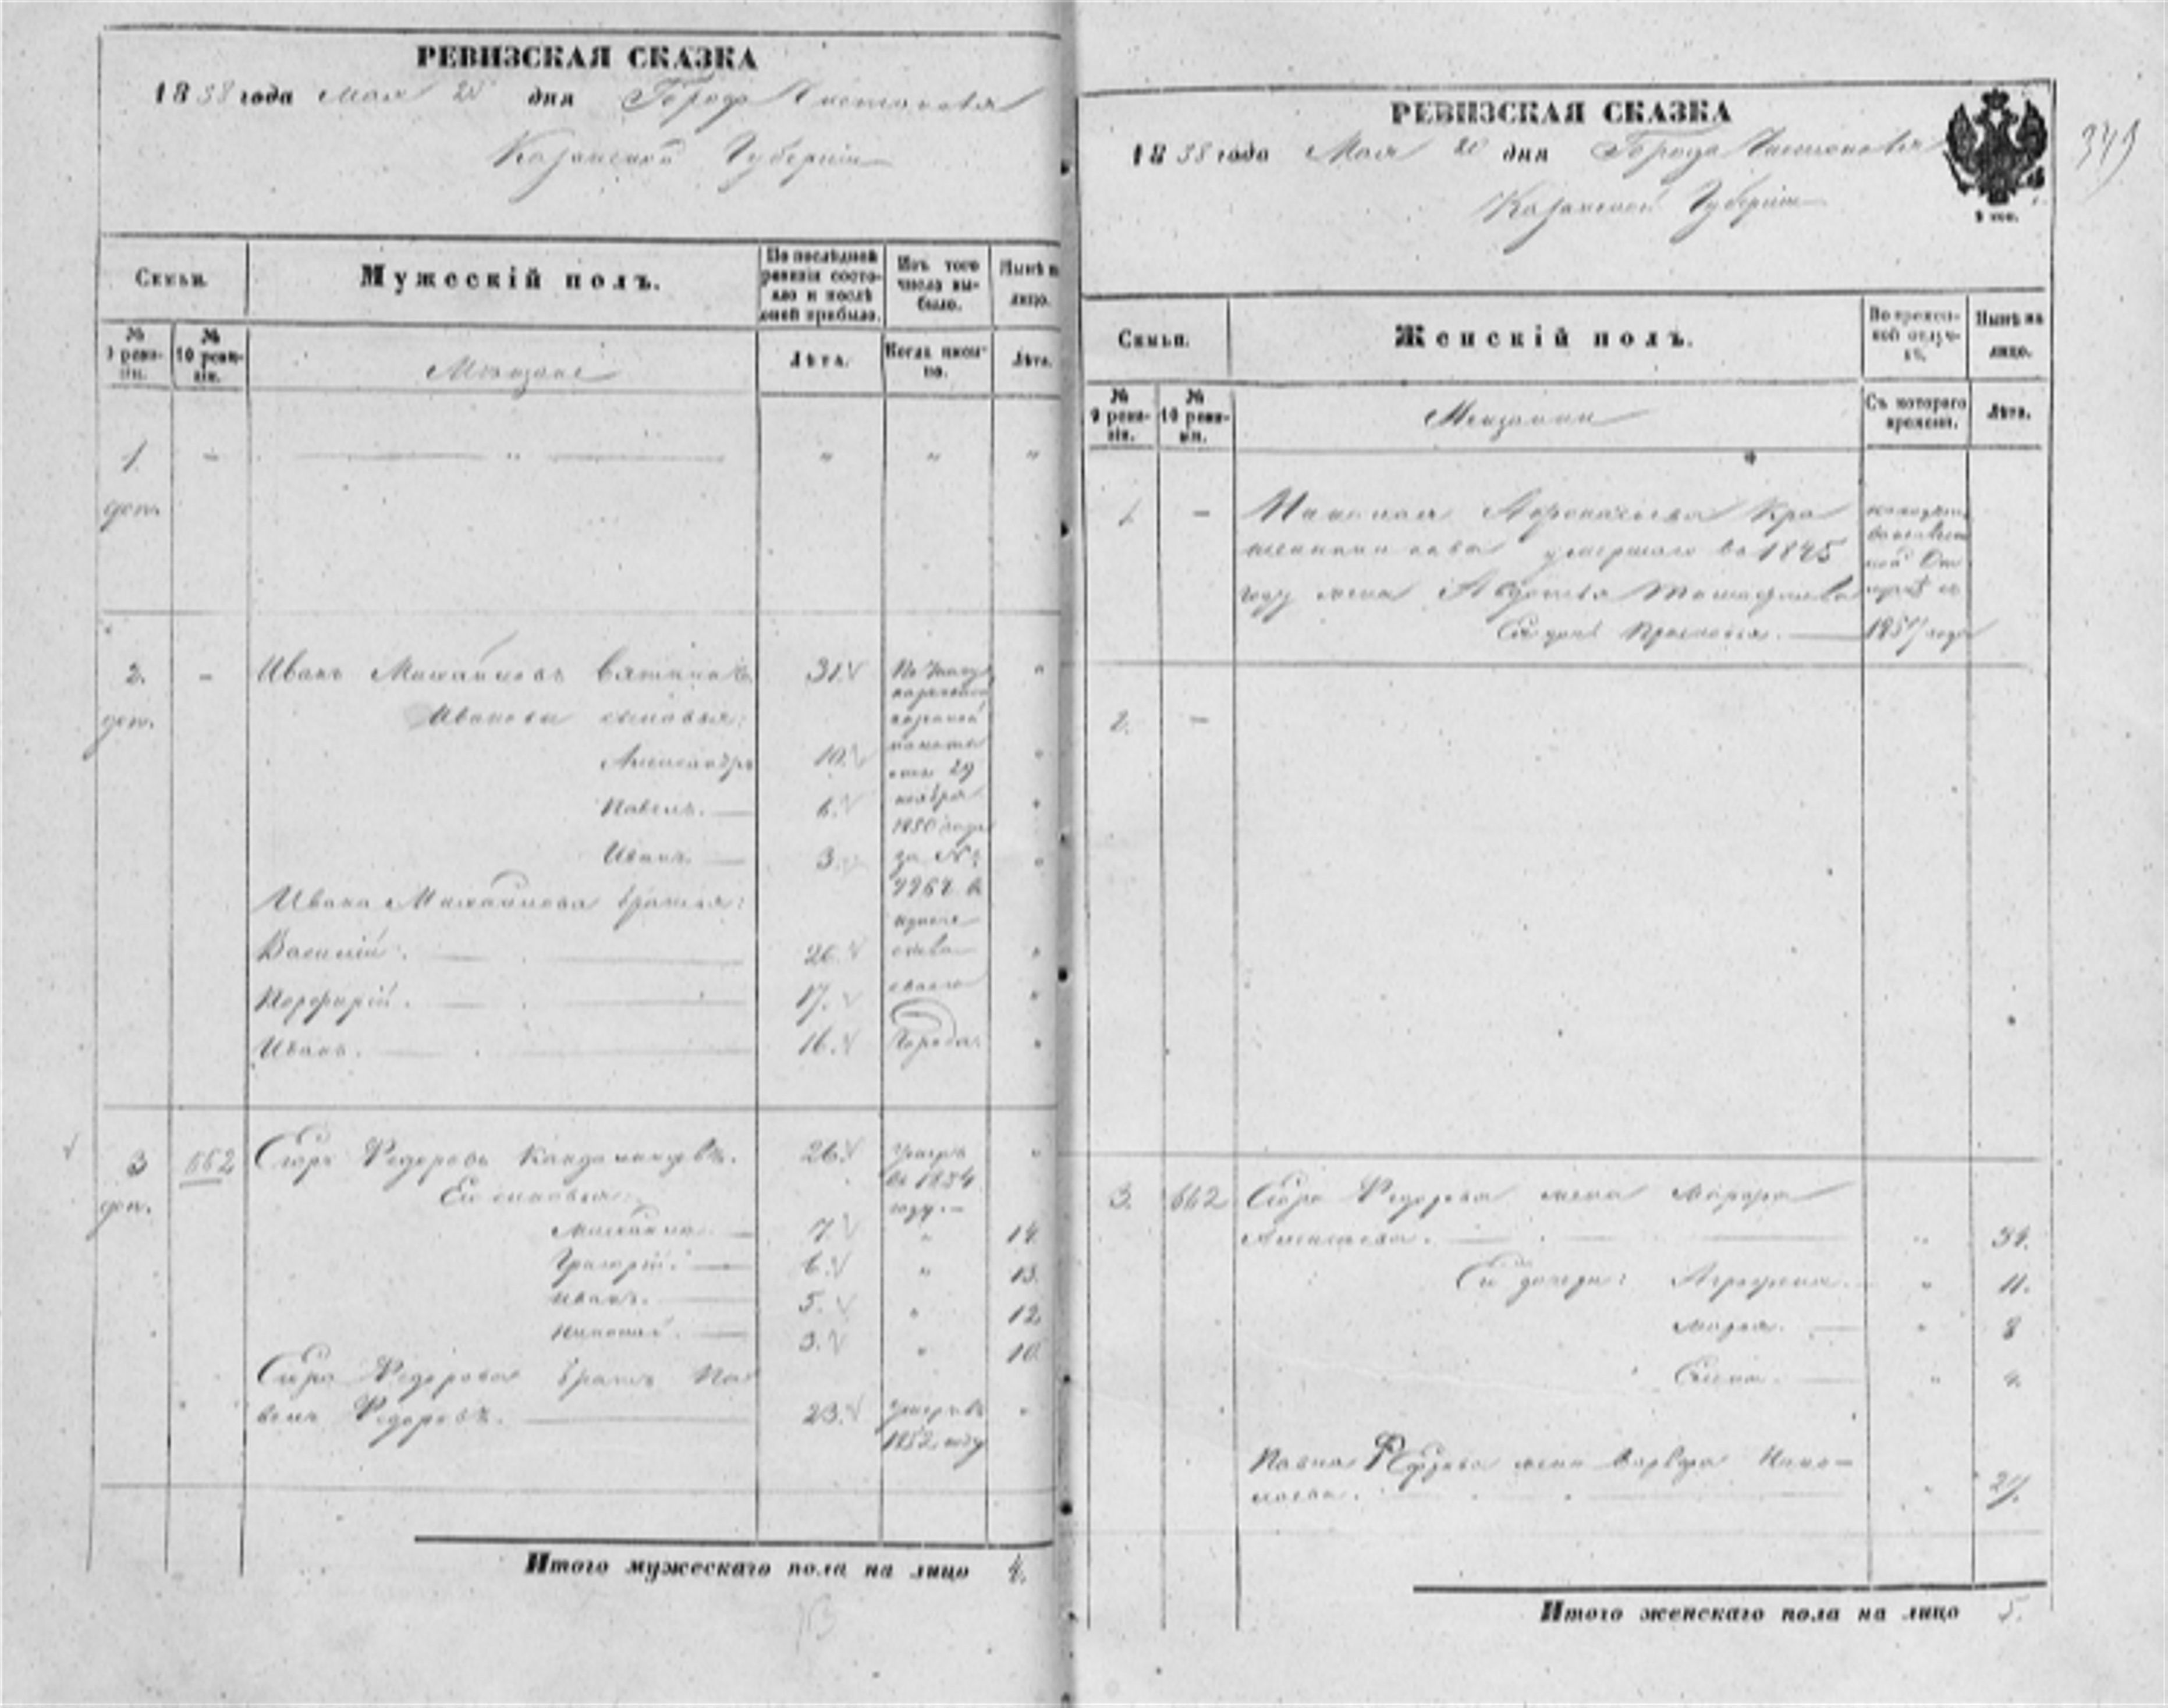 РЕВИЗСКАЯ СКАЗКА
1858 года Мая 20 дня Города Чистополя
Казанской Губернии
Семьи.
Мужескій полъ.
По послѣдней ревизіи состояло и послѣ оной прибыло.
Изъ того числа выбыло.
Нынѣ на лицо.
№ 9 ревизіи.
№ 10 ревизіи.
Мѣщане
Лѣта.
Когда именно.
Лѣта.
1. —
доп.
2. — Иванъ Михайловъ 31.
доп.
Ивановы сыновья:
Александръ 10.
Павелъ. 6.
Иванъ. 3.
Ивана Михайлова братья:
Василій. 26.
Порфирій. 17.
Иванъ. 16.
По Указу
казенной
палаты
отъ 29
ноября
1850 года
за №
купече
ства
своего
Города.
3 662 Егоръ Федоровъ 26.
доп.
умеръ
въ 1854
году.
Его сыновья:
Михайло 7 14.
Григорій. 6. 13.
Иванъ. 5. 12.
Николай. 3. 10.
Егора Федорова братъ Па
велъ Федоровъ. 23.
умеръ въ
1852 году
Итого мужескаго пола на лицо 4.
РЕВИЗСКАЯ СКАЗКА
1858 года Мая 20 дня Города Чистополя
Казанской Губерніи
349
Семьи.
Женскій полъ.
Во временной отлучкѣ.
Нынѣ на лицо.
№ 9 ревизіи.
№ 10 ревизіи.
Мещанки
Съ котораго времени.
Лѣта.
1. — Николая Кра
умершаго въ 1845
году жена Авдотья
Ея дочь Прасковья.
1851 года
2. —
3. 662 Егора Федорова жена Марфа
Алексѣева. 34.
Ея дочери: Аграфена. 11.
Марья. 8
Елена. 4.
Павла Федорова жена Варвара Нико-
лаева. 27.
Итого женскаго пола на лицо 5.